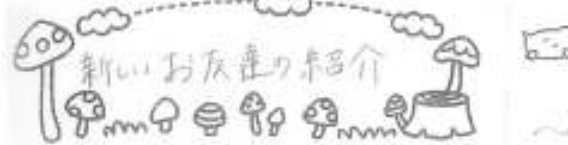 新しいお友達の紹介